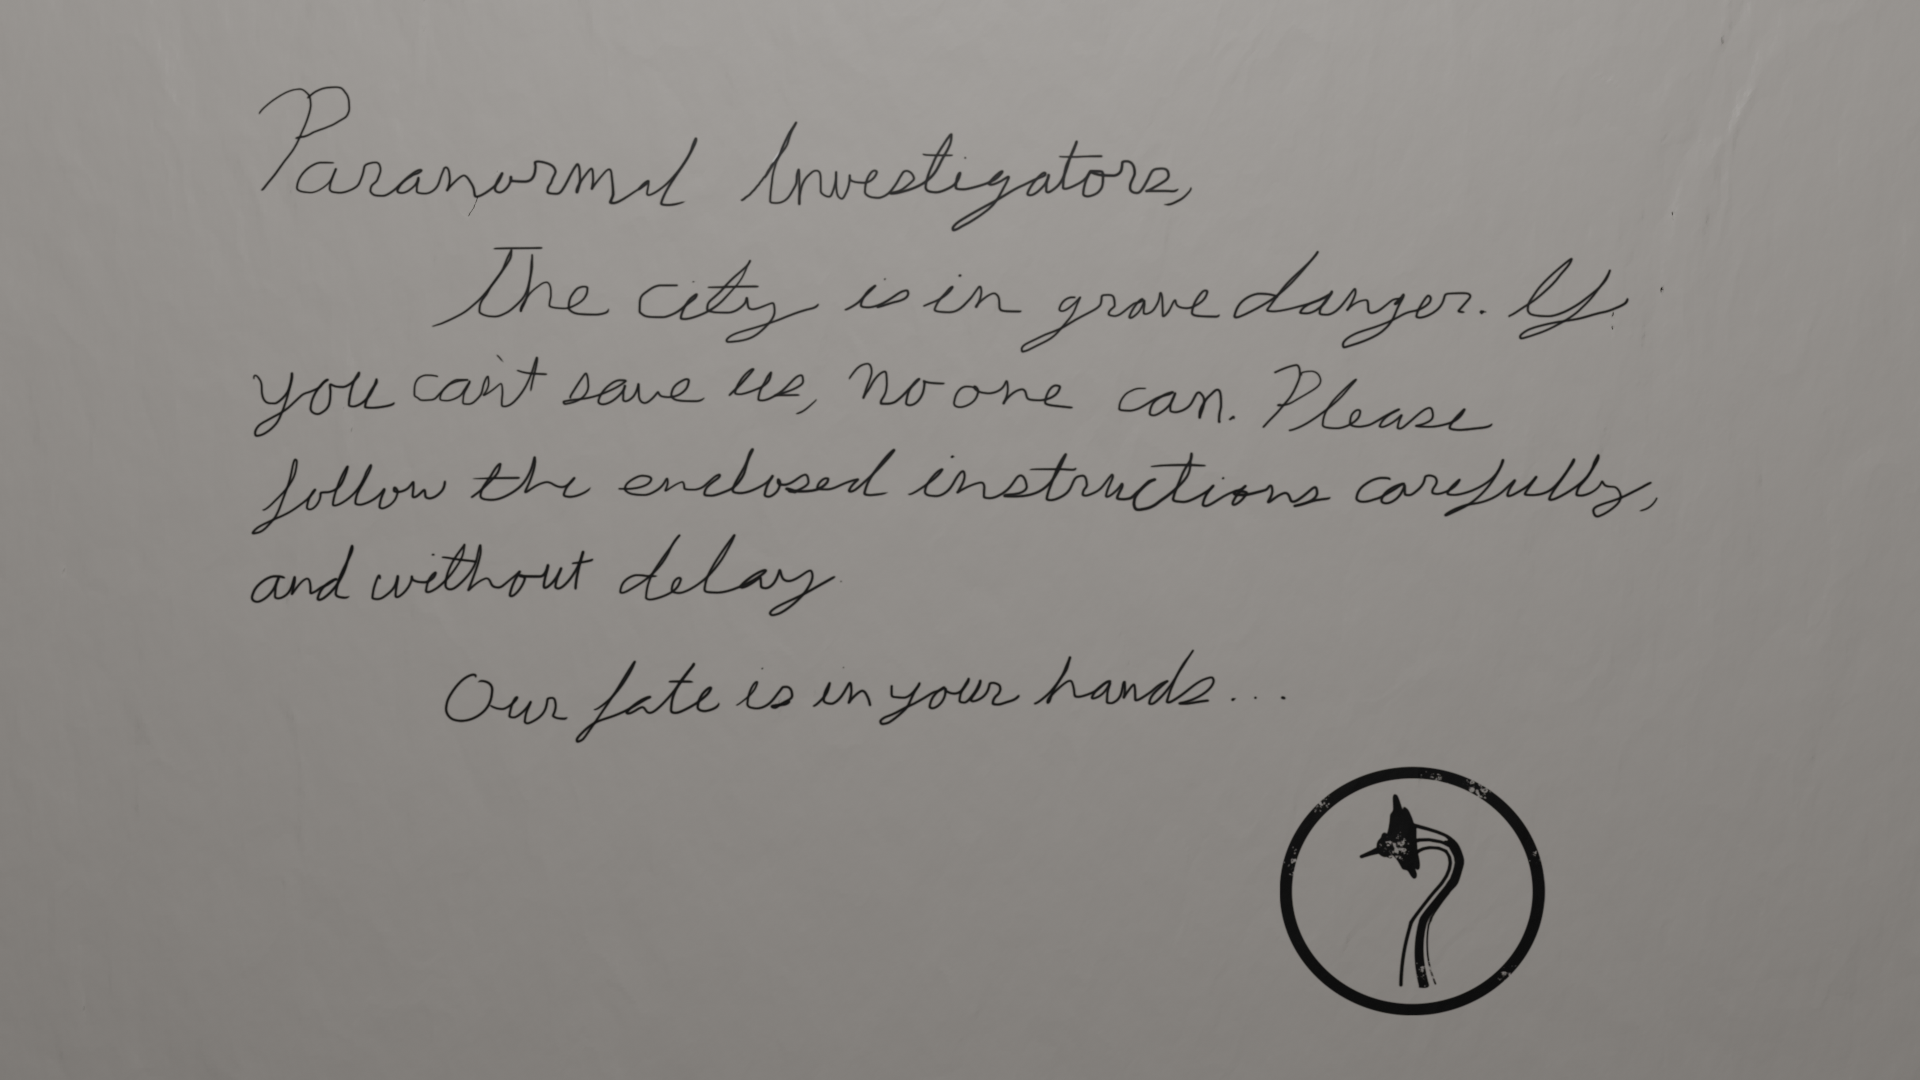 Paranormal Investigators,
The city is in grave danger. If
you can't save us, no one can. Please
follow the enclosed instructions carefully,
and without delay
Our fate is in your hands...